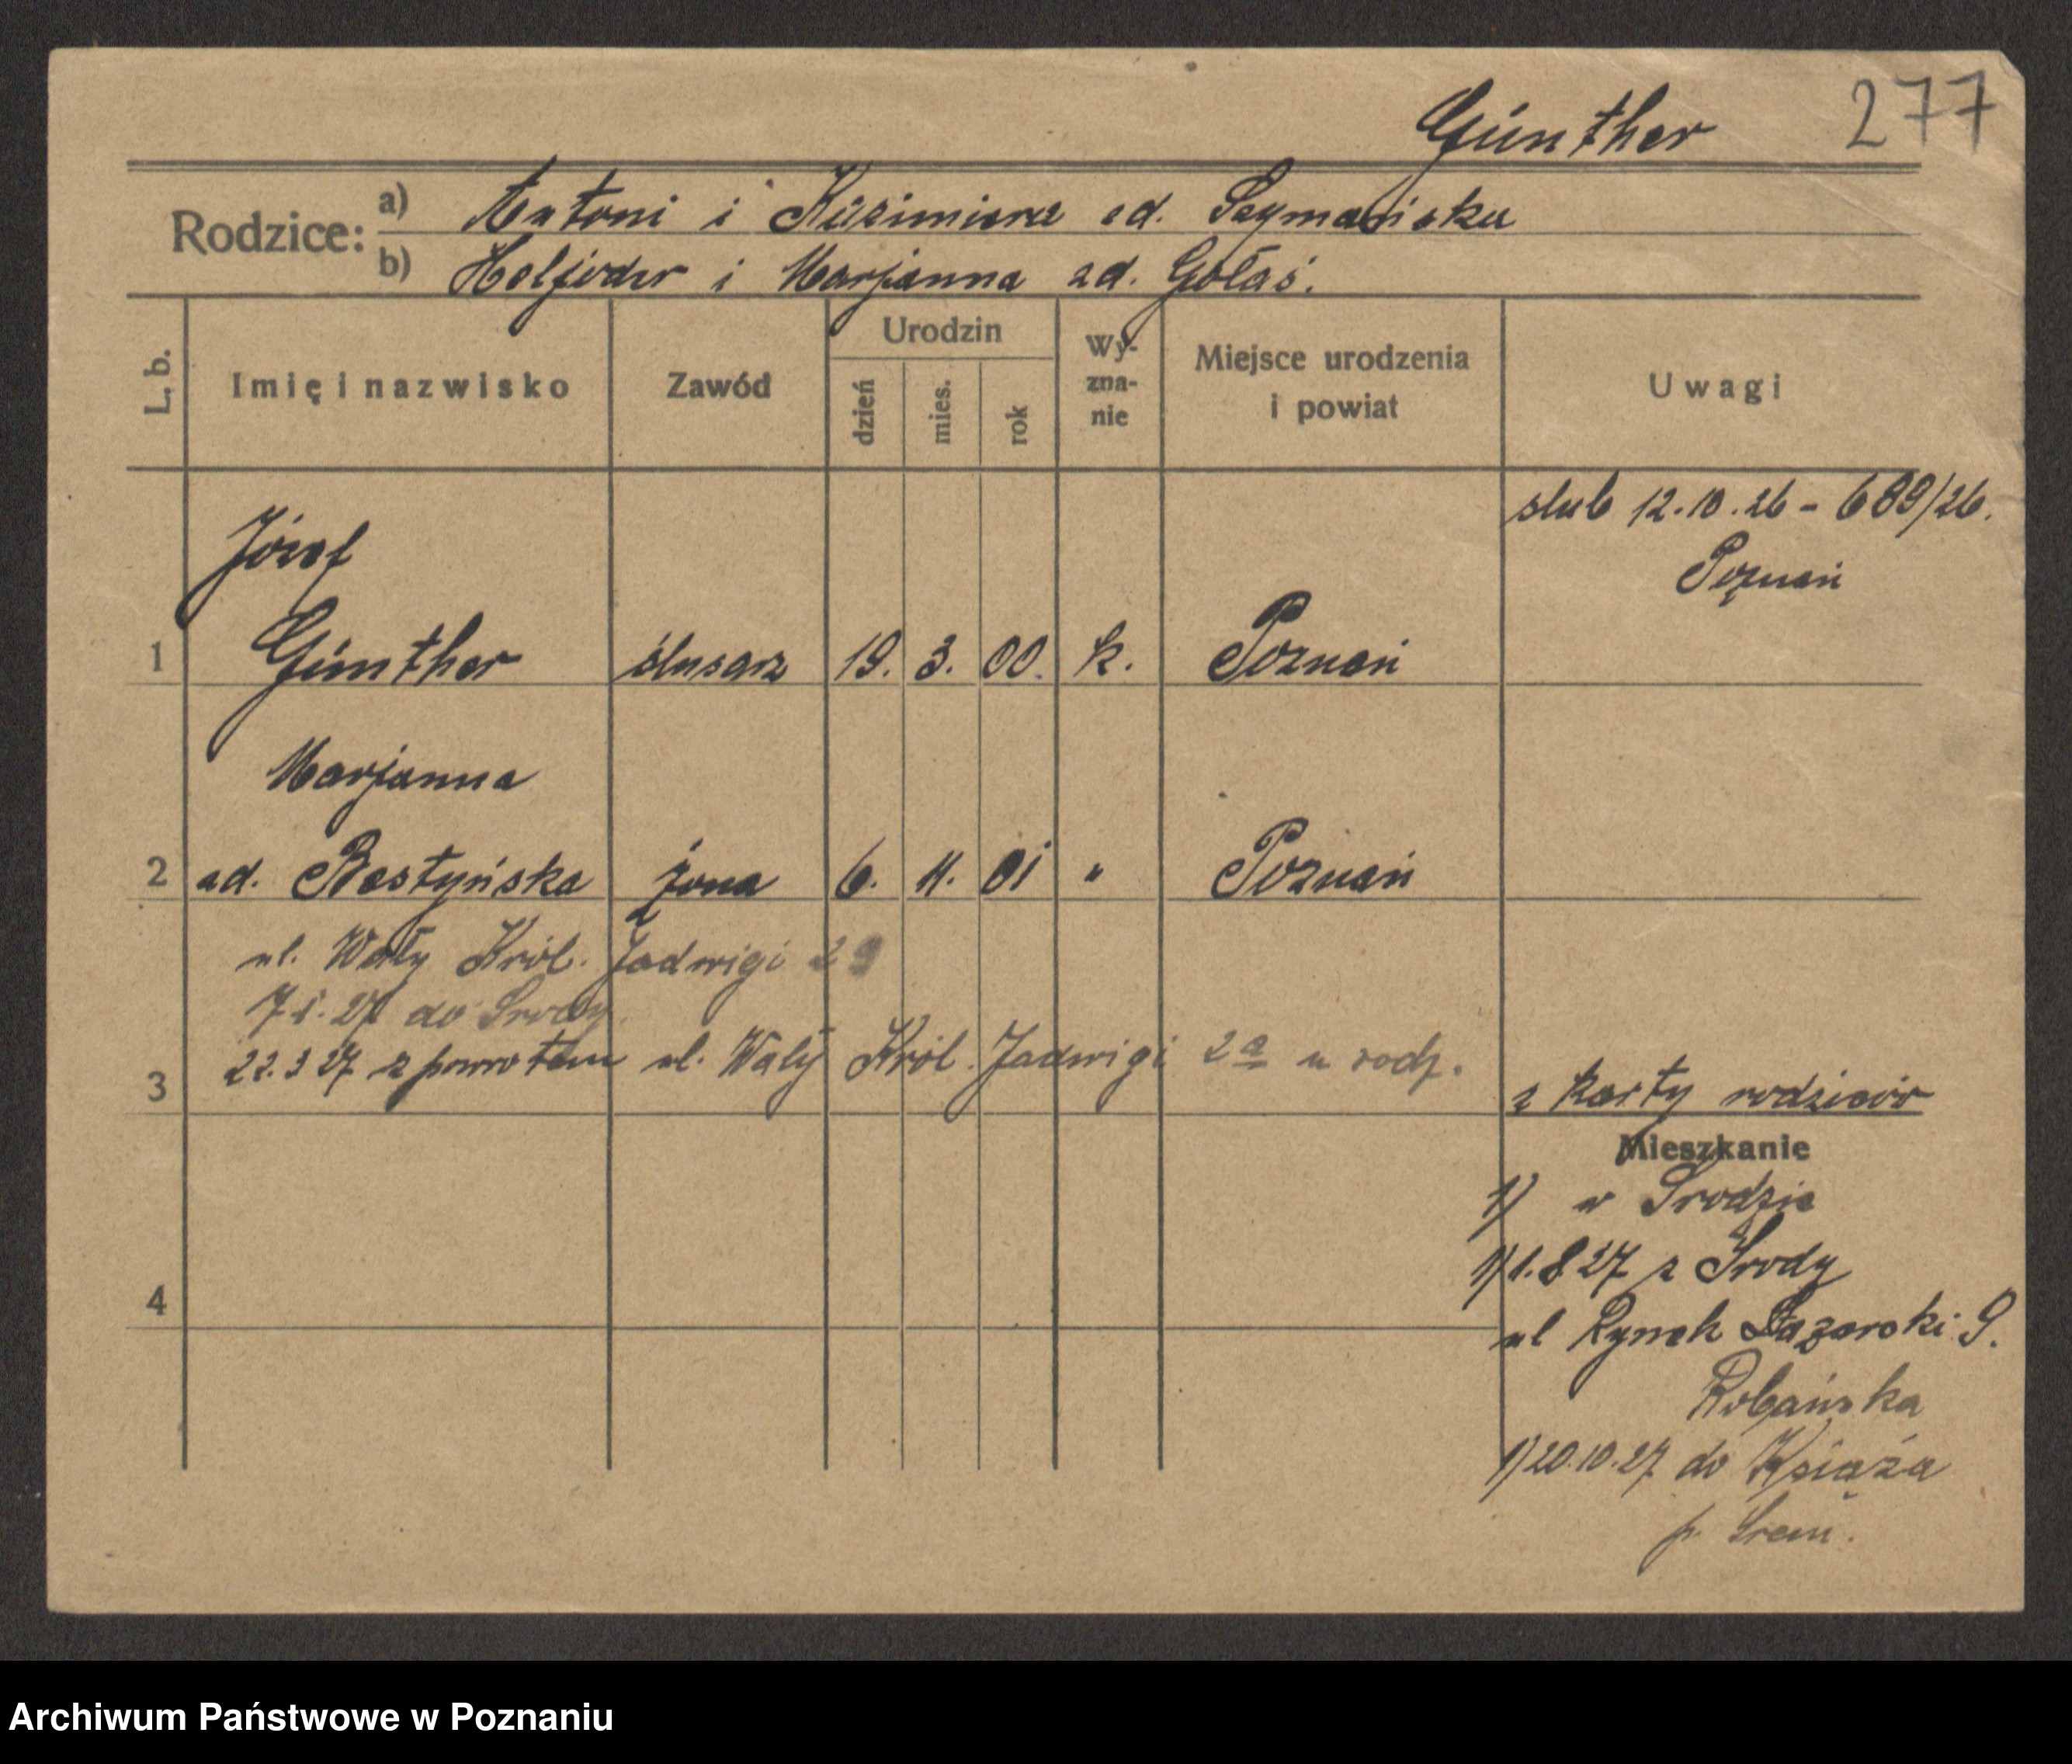 Günther 277
Rodzice: a) Antoni i Kazimiera zd. Szymańska
b) Heljodor i Marjanna zd. Gołaś.
L. b. Imię i nazwisko Zawód Urodzin dzień mies. rok Wy-zna-nie Miejsce urodzenia i powiat Uwagi
ślub 12.10.26 - 689/26.
Poznań
Józef
1 Günther ślusarz 19. 3. 00. k. Poznań
Marjanna
2 zd. Bestyńska żona 6. 11. 01 " Poznań
ul. Wały Król. Jadwigi
7.1.27 do Środy.
22.3 27 z powrotem ul. Wały Król. Jadwigi 2a u rodz.
3 z karty rodziców
Mieszkanie
1) w Środzie
1) 1.8 27 z Środy
4
ul Rynek Łazarski 9.
1) 20.10.27 do Książa
p. Śrem.
Archiwum Państwowe w Poznaniu